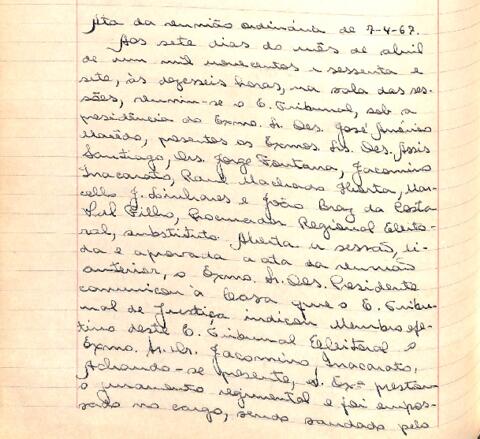 Ata da reunião ordinária de 7-4-67.
Aos sete dias do mês de abril
de um mil novecentos e sessenta e
sete, às dezesseis horas, na sala das ses-
sões, reuniu-se o E. Tribunal, sob a
presidência do Exmo. Sr. Des. José Américo
Macêdo, presentes os Exmos. Srs. Des. Assis
Santiago, Drs. Jorge Fontana, Jacomino
Inacarato, Raul Machado Horta, Mar-
cello J. Linhares e João Braz da Costa
Val Filho, Procurador Regional Eleito-
ral, substituto. Aberta a sessão, li-
da e aprovada a ata da reunião
anterior, o Exmo. Sr. Des. Presidente
comunicou à Casa que o E. Tribu-
nal de Justiça indicou Membro efe-
tivo deste E. Tribunal Eleitoral o
Exmo. Sr. Dr. Jacomino Inacarato.
Achando-se presente, S. Exª prestou
o juramento regimental e foi empos-
sado no cargo, sendo saudado pelo